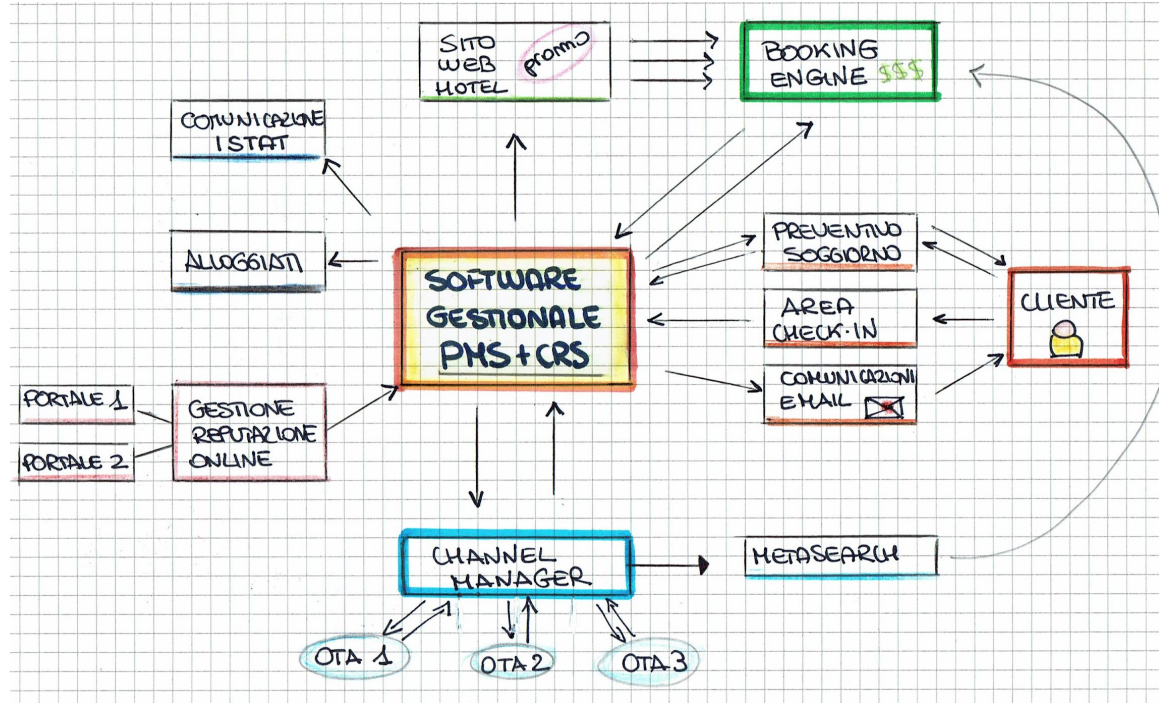 SITO
WEB
HOTEL
promo
BOOKING
ENGINE $$$
COMUNICAZIONE
ISTAT
ALLOGGIATI
SOFTWARE
GESTIONALE
PMS+CRS
PREVENTIVO
SOGGIORNO
AREA
CHECK-IN
COMUNICAZIONI
EMAIL
CLIENTE
PORTALE 1
PORTALE 2
GESTIONE
REPUTAZIONE
ONLINE
CHANNEL
MANAGER
METASEARCH
OTA 1
OTA 2
OTA 3